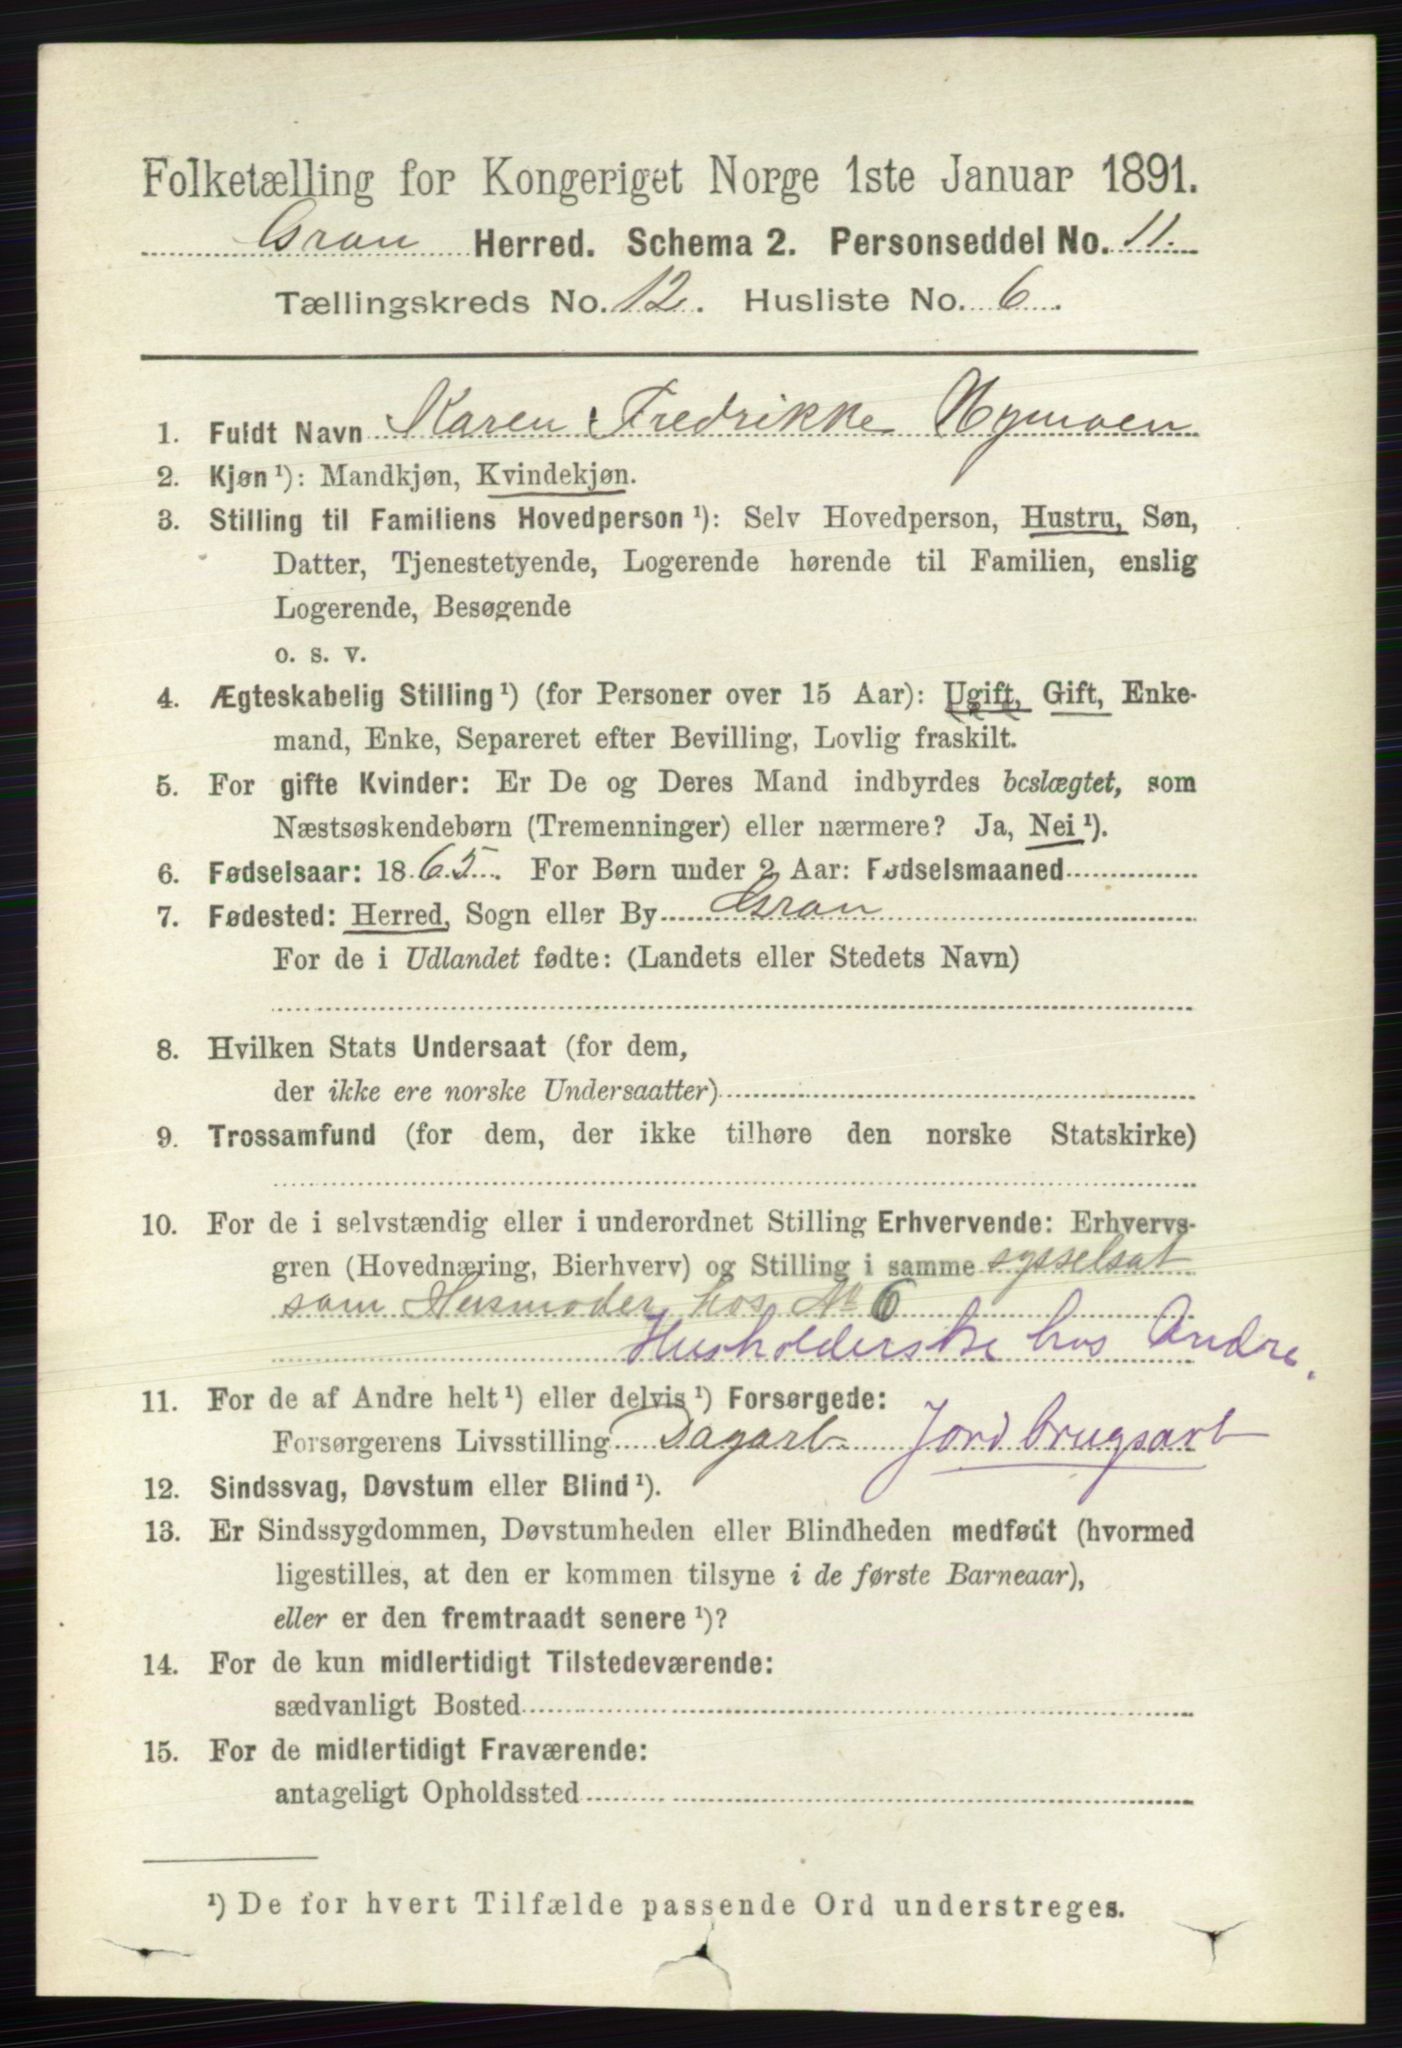 Folketælling for Kongeriget Norge 1ste Januar 1891.
Gran Herred. Schema 2. Personseddel No. 11.
Tællingskreds No. 12. Husliste No. 6.
1. Fuldt Navn Karen Fredrikke Nymoen
2. Kjøn¹): Mandkjøn, Kvindekjøn.
3. Stilling til Familiens Hovedperson¹): Selv Hovedperson, Hustru, Søn,
Datter, Tjenestetyende, Logerende hørende til Familien, enslig
Logerende, Besøgende
o. s. v.
4. Ægteskabelig Stilling¹) (for Personer over 15 Aar): Ugift, Gift, Enke-
mand, Enke, Separeret efter Bevilling, Lovlig fraskilt.
5. For gifte Kvinder: Er De og Deres Mand indbyrdes beslægtet, som
Næstsøskendebørn (Tremenninger) eller nærmere? Ja, Nei¹).
6. Fødselsaar: 1865. For Børn under 2 Aar: Fødselsmaaned
7. Fødested: Herred, Sogn eller By Gran
For de i Udlandet fødte: (Landets eller Stedets Navn)
8. Hvilken Stats Undersaat (for dem,
der ikke ere norske Undersaatter)
9. Trossamfund (for dem, der ikke tilhøre den norske Statskirke)
10. For de i selvstændig eller i underordnet Stilling Erhvervende: Erhvervs-
gren (Hovednæring, Bierhverv) og Stilling i samme sysselsat
som Husmoder hos No 6
Husholderske hos Andre.
11. For de af Andre helt¹) eller delvis¹) Forsørgede:
Forsørgerens Livsstilling Dagarb. Jordbrugsarb
12. Sindssvag, Døvstum eller Blind¹).
13. Er Sindssygdommen, Døvstumheden eller Blindheden medfødt (hvormed
ligestilles, at den er kommen tilsyne i de første Barneaar),
eller er den fremtraadt senere¹)?
14. For de kun midlertidigt Tilstedeværende:
sædvanligt Bosted
15. For de midlertidigt Fraværende:
antageligt Opholdssted
¹) De for hvert Tilfælde passende Ord understreges.